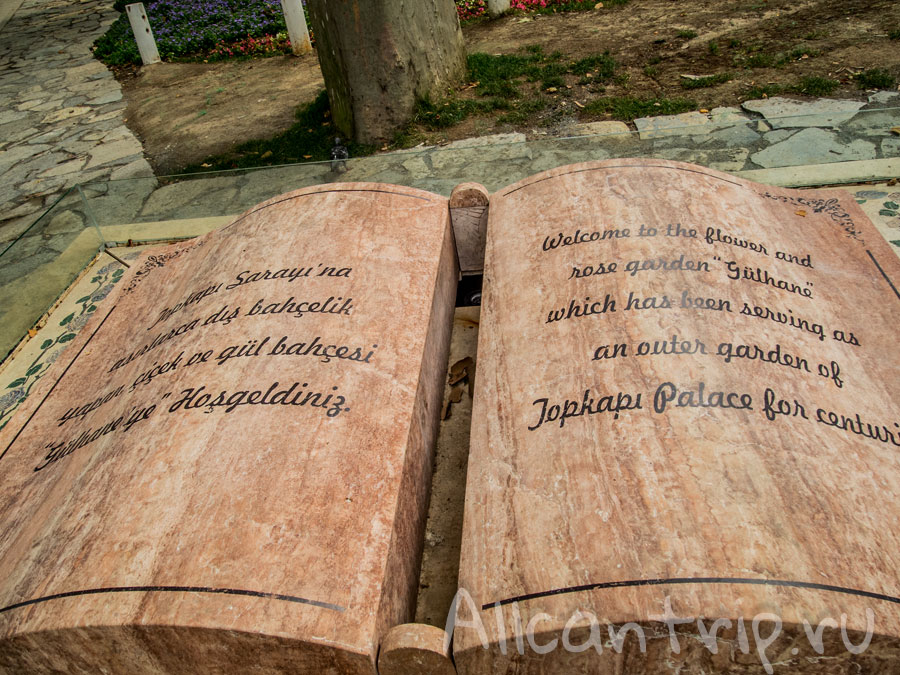 Topkapı Sarayı'na
asırlarca dış bahçelik
yapan, çiçek ve gül bahçesi
"Gülhane'ye" Hoşgeldiniz.
Welcome to the flower and
rose garden "Gülhane"
which has been serving as
an outer garden of
Topkapı Palace for centuri
Alicantrip.ru